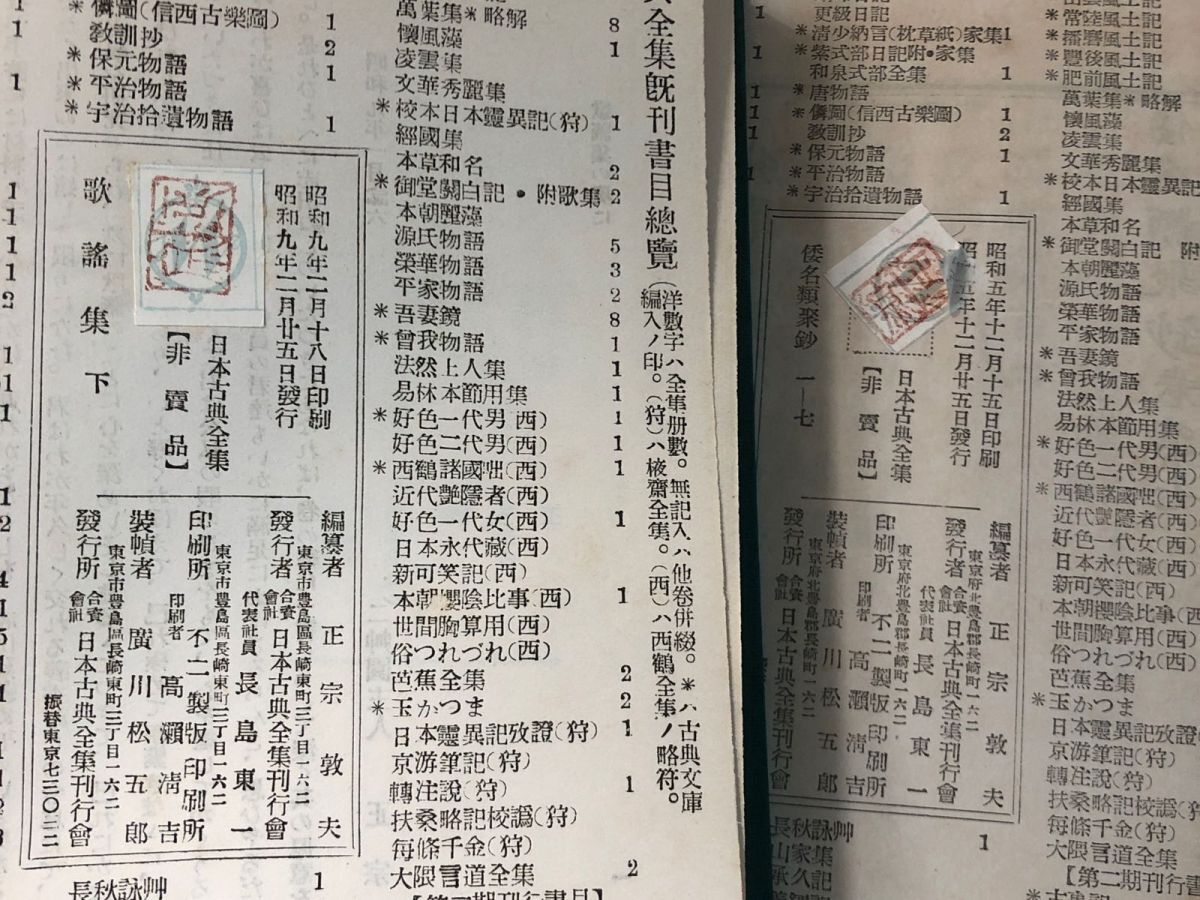 儛圖(信西古樂圖)
教訓抄
＊保元物語
＊平治物語
＊宇治拾遺物語
1
2
1
1
歌謠集 下
昭和九年二月十八日印刷
昭和九年二月廿五日發行
日本古典全集
【非賣品】
編纂者 正宗敦夫
東京市豊島區長崎東町三丁目一六二
發行者 合資會社 日本古典全集刊行會
代表社員 長島東一
東京市豊島區長崎東町三丁目一六二
印刷所 不二製版印刷所
印刷者 高瀬淸吉
裝幀者 廣川松五郎
東京市豊島區長崎東町三丁目一六二
發行所 合資會社 日本古典全集刊行會
振替東京七三〇三二
長秋詠艸 1
全集既刊書目總覽
(洋數字ハ全集册數。無記入ハ他卷併綴。＊ハ古典文庫
編入ノ印。(狩)ハ棭齋全集。(西)ハ西鶴全集ノ略符。
萬葉集＊略解 8
懷風藻 1
凌雲集
文華秀麗集
＊校本日本靈異記(狩) 1
經國集
本草和名 2
＊御堂關白記・附歌集 2
本朝麗藻
源氏物語 5
榮華物語 3
平家物語 2
＊吾妻鏡 8
＊曾我物語 1
法然上人集 1
易林本節用集 1
＊好色一代男(西) 1
好色二代男(西) 1
＊西鶴諸國咄(西) 1
近代艶隱者(西)
好色一代女(西) 1
日本永代藏(西)
新可笑記(西)
本朝櫻陰比事(西) 1
世間胸算用(西)
俗つれづれ(西)
芭蕉全集 2
＊玉かつま 2
日本靈異記攷證(狩) 1
京游筆記(狩)
轉注說(狩) 1
扶桑略記校譌(狩)
每條千金(狩)
大隈言道全集 2
更級日記
＊清少納言(枕草紙)家集 1
＊紫式部日記附・家集
和泉式部全集 1
＊唐物語
＊儛圖(信西古樂圖) 1
教訓抄 2
＊保元物語 1
＊平治物語
＊宇治拾遺物語 1
倭名類聚鈔 一—七
昭和五年十二月十五日印刷
昭和五年十二月廿五日發行
日本古典全集
【非賣品】
編纂者 正宗敦夫
東京府北豊島郡長崎町一六二
發行者 合資會社 日本古典全集刊行會
代表社員 長島東一
東京府北豊島郡長崎町一六二
印刷所 不二製版印刷所
印刷者 高瀬淸吉
裝幀者 廣川松五郎
東京府北豊島郡長崎町一六二
發行所 合資會社 日本古典全集刊行會
長秋詠艸 1
山家集
＊常陸風土記
＊播磨風土記
＊豐後風土記
＊肥前風土記
萬葉集＊略解
懷風藻
凌雲集
文華秀麗集
＊校本日本靈異記
經國集
本草和名
＊御堂關白記 附
本朝麗藻
源氏物語
榮華物語
平家物語
＊吾妻鏡
＊曾我物語
法然上人集
易林本節用集
＊好色一代男(西)
好色二代男(西)
＊西鶴諸國咄(西)
近代艶隱者(西)
好色一代女(西)
日本永代藏(西)
新可笑記(西)
本朝櫻陰比事(西)
世間胸算用(西)
俗つれづれ(西)
芭蕉全集
＊玉かつま
日本靈異記攷證
京游筆記(狩)
轉注說(狩)
扶桑略記校譌(狩)
每條千金(狩)
大隈言道全集
【第二期刊行書